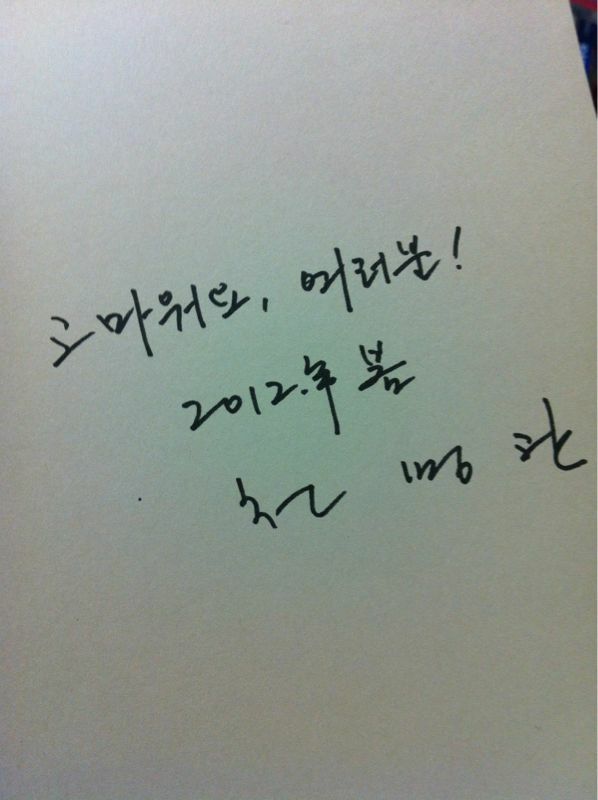 고마워요, 여러분!
2012.年 봄
천명관